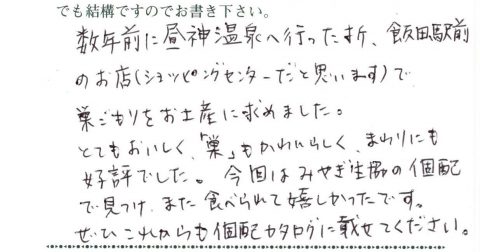 でも結構ですのでお書き下さい。
数年前に昼神温泉へ行った折、飯田駅前
のお店(ショッピングセンターだと思います)で
巣ごもりをお土産に求めました。
とてもおいしく、「巣」もかわいらしく、まわりにも
好評でした。今回はみやぎ生協の個配
で見つけ、また食べられて嬉しかったです。
ぜひこれからも個配カタログに載せてください。